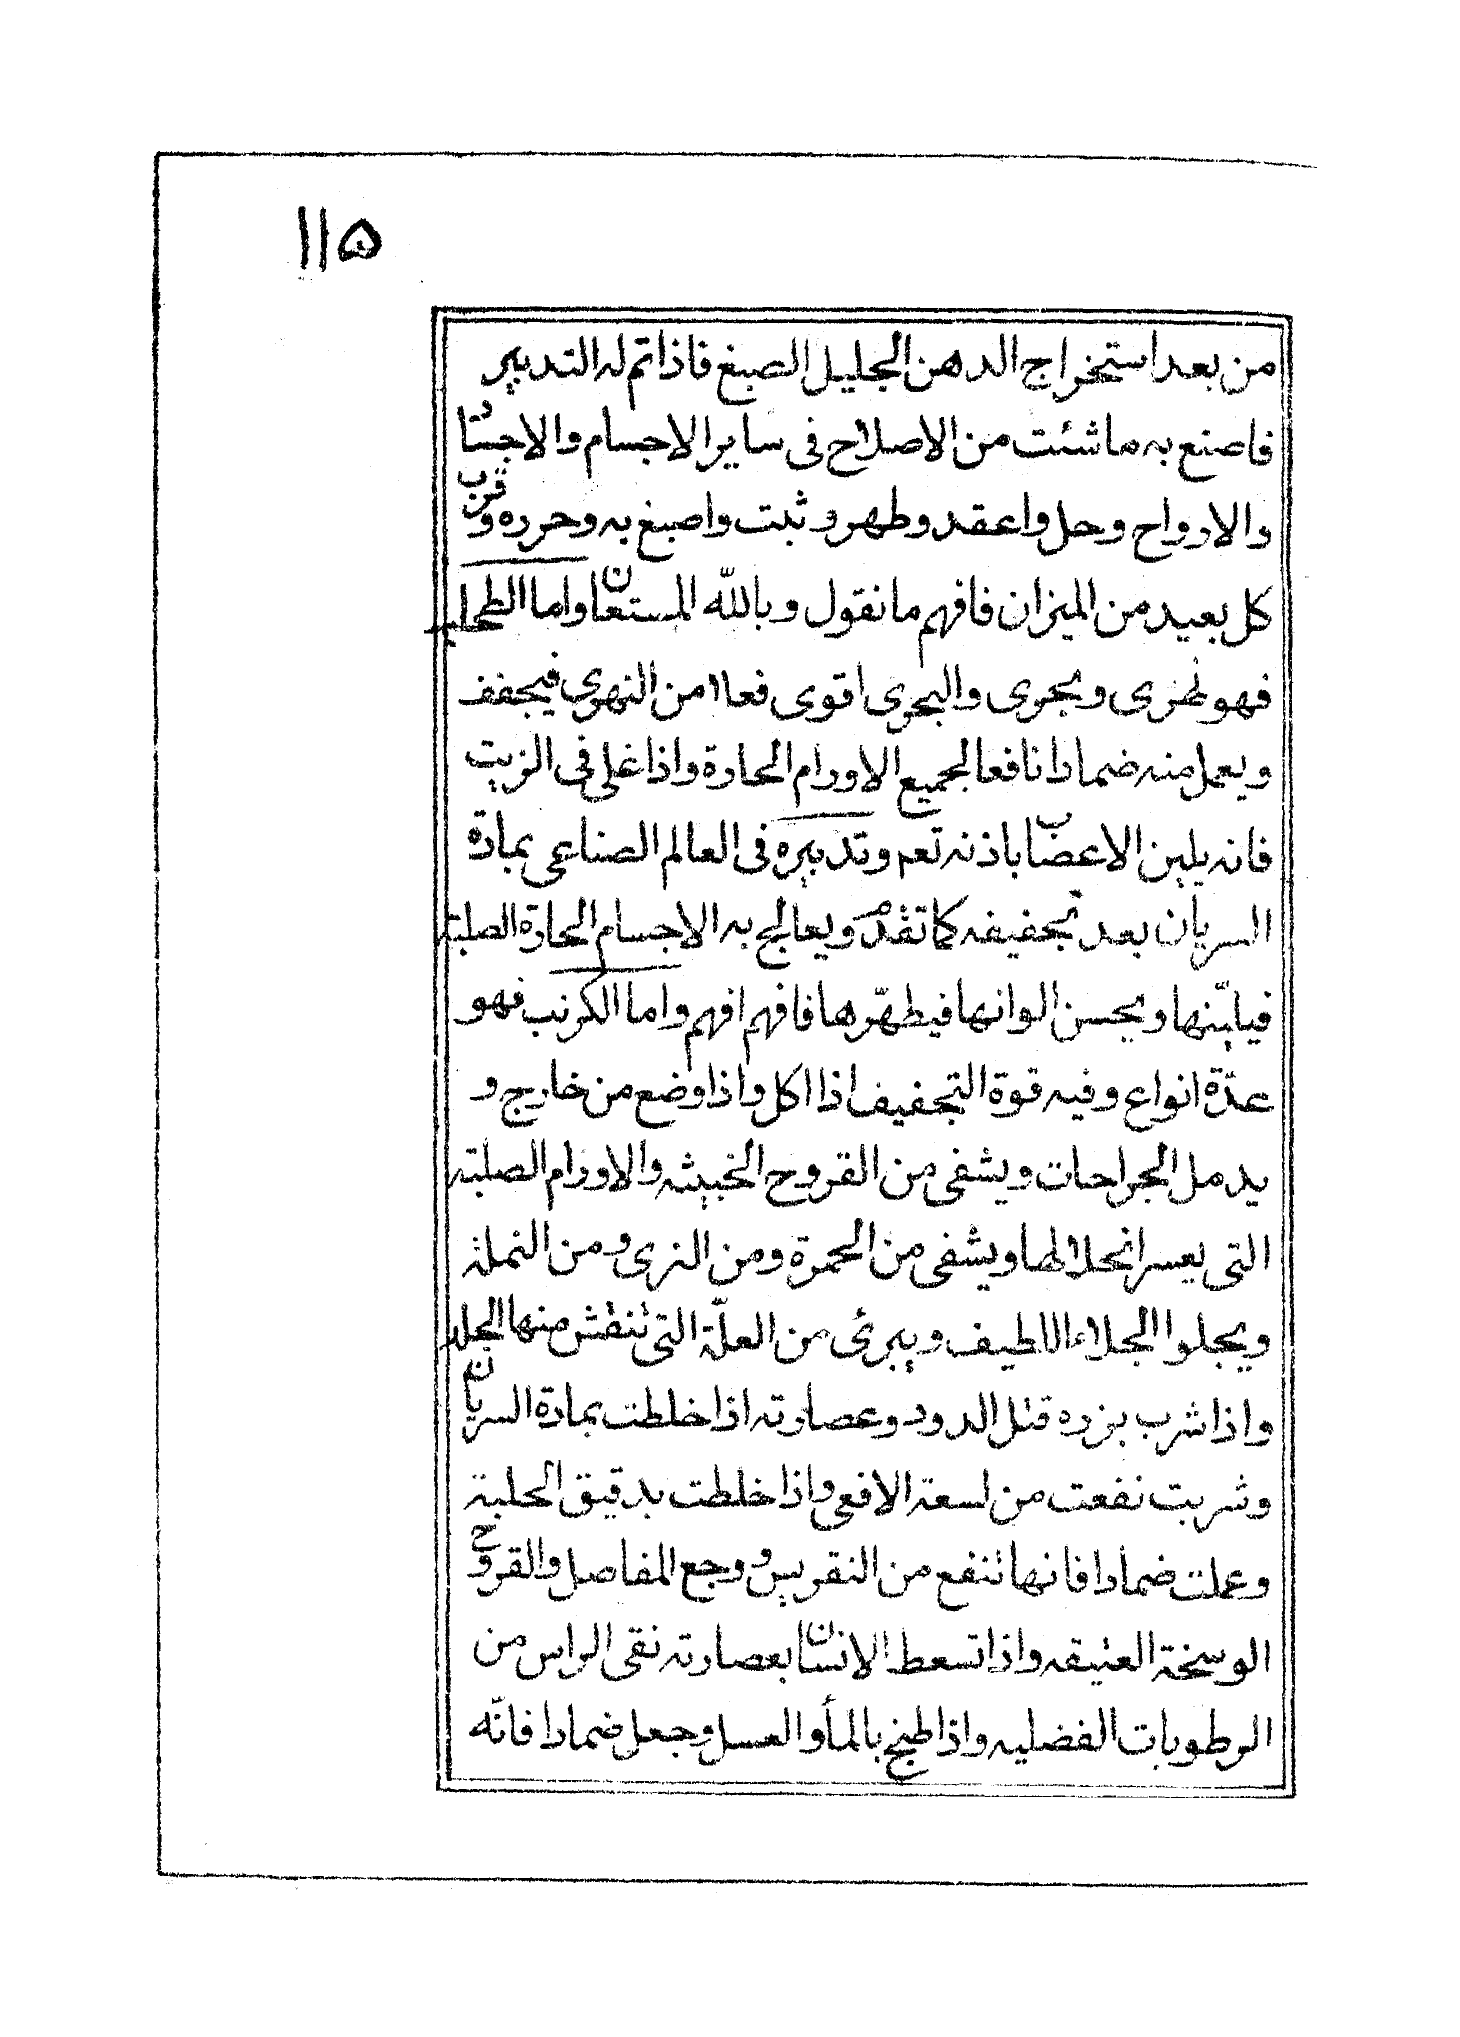 ۱۱۵
من بعد استخراج الدهن الجليل الصبغ فاذا تم له التدبير
فاصنع به ما شئت من الاصلاح فى ساير الاجسام والاجساد
والارواح وحل واعقد وطهر و ثبت واصبغ به وحرره وقرب
كل بعيد من الميزان فافهم ما نقول وبالله المستعان واما الطحلب
فهو نهرى وبحرى والبحرى اقوى فعلا من النهرى فيجفف
ويعمل منه ضمادا نافعا لجميع الاورام الحادة واذا غلى فى الزيت
فانه يلين الاعصاب باذنه تعم وتدبيره فى العالم الصناعى بمادة
السريان بعد تجفيفه كما تقدم ويعالج به الاجسام الحادة الصلبة
فيلينها ويحسن الوانها فيطهّرها فافهم افهم واما الكرنب فهو
عدّة انواع وفيه قوة التجفيف اذا اكل واذا وضع من خارج و
يدمل الجراحات ويشفى من القروح الخبيثه والاورام الصلبة
التى يعسر انحلالها ويشفى من الحمرة ومن الشرى ومن النملة
ويجلوا الجلاء اللطيف ويبرئ من العلّة التى تنقشر منها الجلد
واذا شرب بزره قتل الدود وعصارته اذا خلطت بمادة السريان
وشربت نفعت من لسعة الافعى واذا خلطت بدقيق الحلبة
وعملت ضمادا فانها تنفع من النقرس ووجع المفاصل والقروح
الوسخة العتيقه واذا تسعط الانسان بعصارته نقى الراس من
الرطوبات الفضليه واذا طبخ بالمأ والعسل وجعل ضمادا فانّه